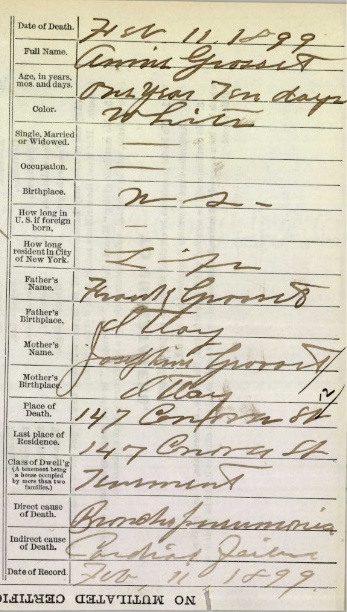 Date of Death. Feb 11 1899
Full Name. Annie Grosset
Age, in years, mos. and days. One Year Ten days
Color. White
Single, Married or Widowed. —
Occupation. —
Birthplace. U S -
How long in U. S. if foreign born, —
How long resident in City of New York. Life
Father's Name. Frank Grosset
Father's Birthplace. Italy
Mother's Name. Josephine Grosset
Mother's Birthplace. Italy
Place of Death. 147 St 12
Last place of Residence. 147 St
Class of Dwell'g (A tenement being a house occupied by more than two families.) Tenement
Direct cause of Death. Broncho pneumonia
Indirect cause of Death. Cardiac Failure
Date of Record. Feb, 11 1899
NO MUTILATED CERTIFIC